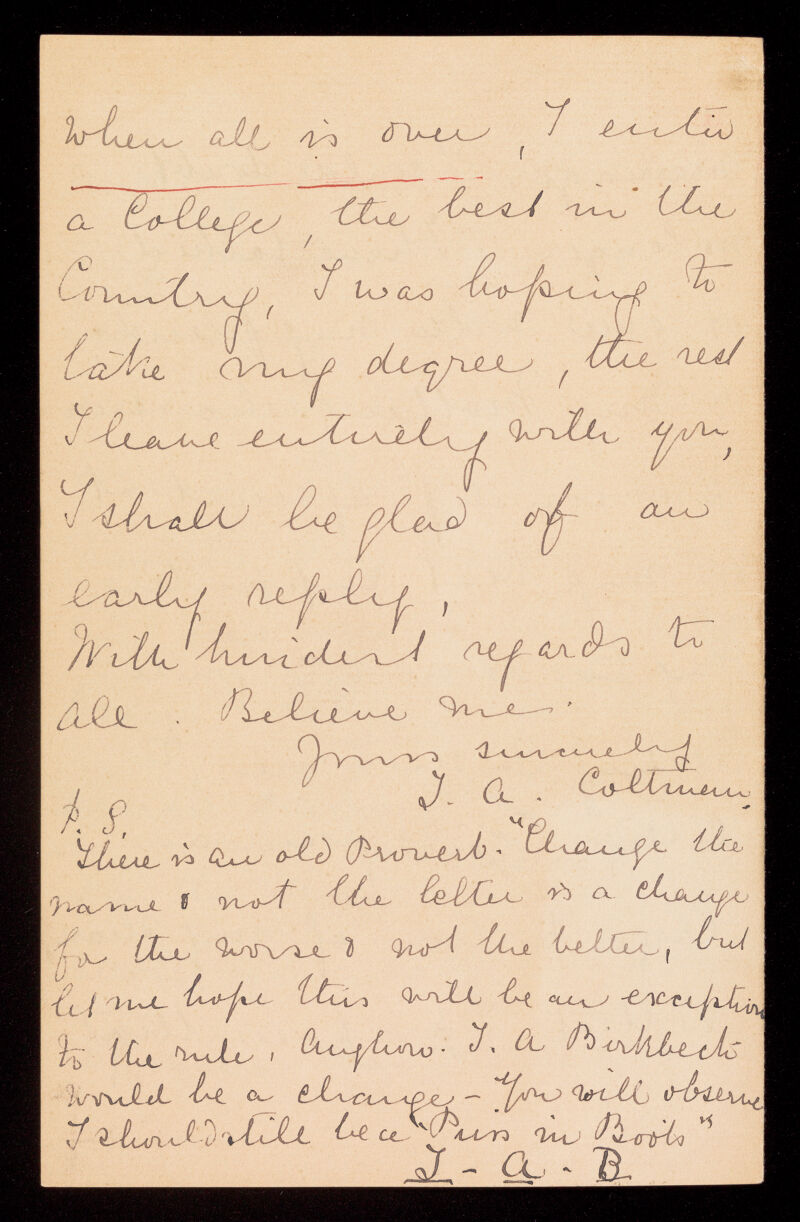 When all is over, I enter
a College, the best in the
Country, I was hoping to
take my degree, the rest
I leave entirely with you,
I shall be glad of an
early reply,
With kindest regards to
all. Believe me.
Yours sincerely
I. A. Coltman.
P. S.
There is an old Proverb. "Change the
name & not the letter is a change
for the worse & not the better, but
let me hope this will be an exception
to the rule, Anyhow. I. A Birkbeck
would be a change - You will observe
I should still be a "Puss in Boots"
I - A - B